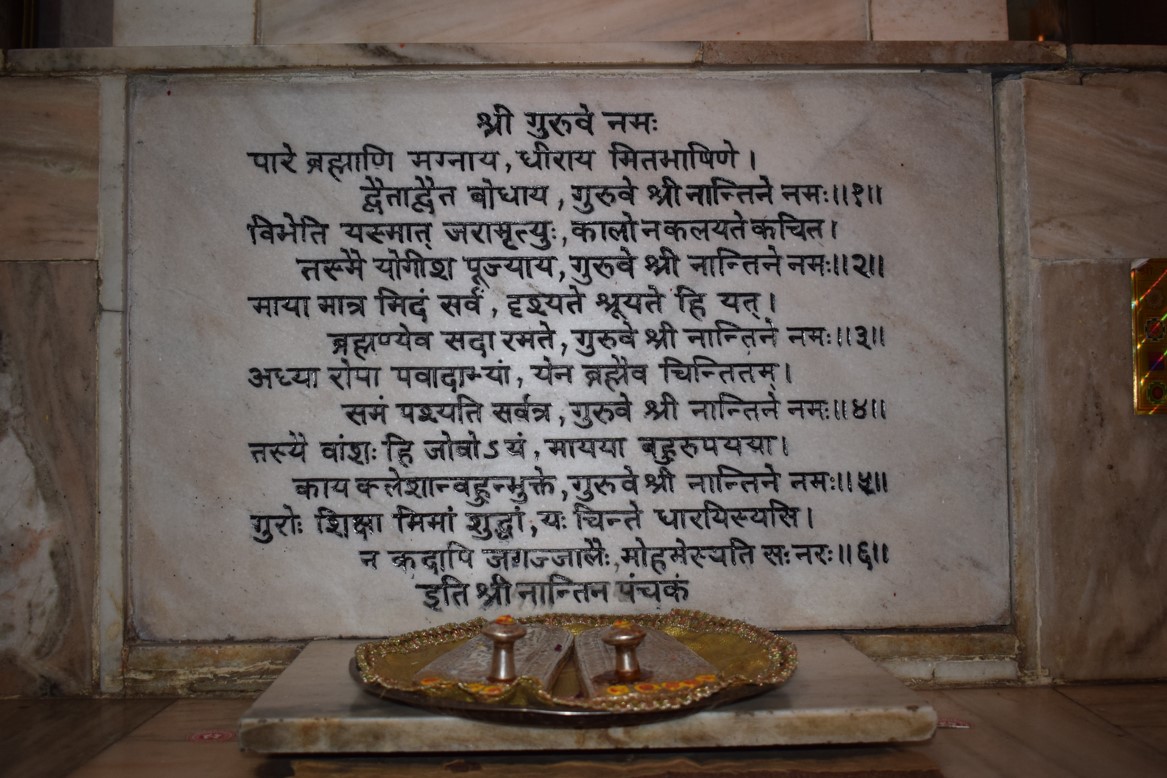 श्री गुरुवे नमः
पारे ब्रह्माणि मग्नाय, धीराय मितभाषिणे।
द्वैताद्वैत बोधाय, गुरुवे श्री नान्तिने नमः॥१॥
विभेति यस्मात् जरामृत्युः, कालो न कलयते कचित।
तस्मै योगीश पूज्याय, गुरुवे श्री नान्तिने नमः॥२॥
माया मात्र मिदं सर्वं, दृश्यते श्रूयते हि यत्।
ब्रह्मण्येव सदा रमते, गुरुवे श्री नान्तिने नमः॥३॥
अध्या रोपा पवादाभ्यां, येन ब्रह्मैव चिन्तितम्।
समं पश्यति सर्वत्र, गुरुवे श्री नान्तिने नमः॥४॥
तस्यै वांशः हि जोवोऽयं, मायया बहुरुपयया।
काय क्लेशान्वहुन्भुक्ते, गुरुवे श्री नान्तिने नमः॥५॥
गुरोः शिक्षा मिमां शुद्धां, यः चिन्ते धारयिस्यसि।
न कदापि जगज्जालैः, मोहमेस्यति सः नरः॥६॥
इति श्री नान्तिन पंचकं